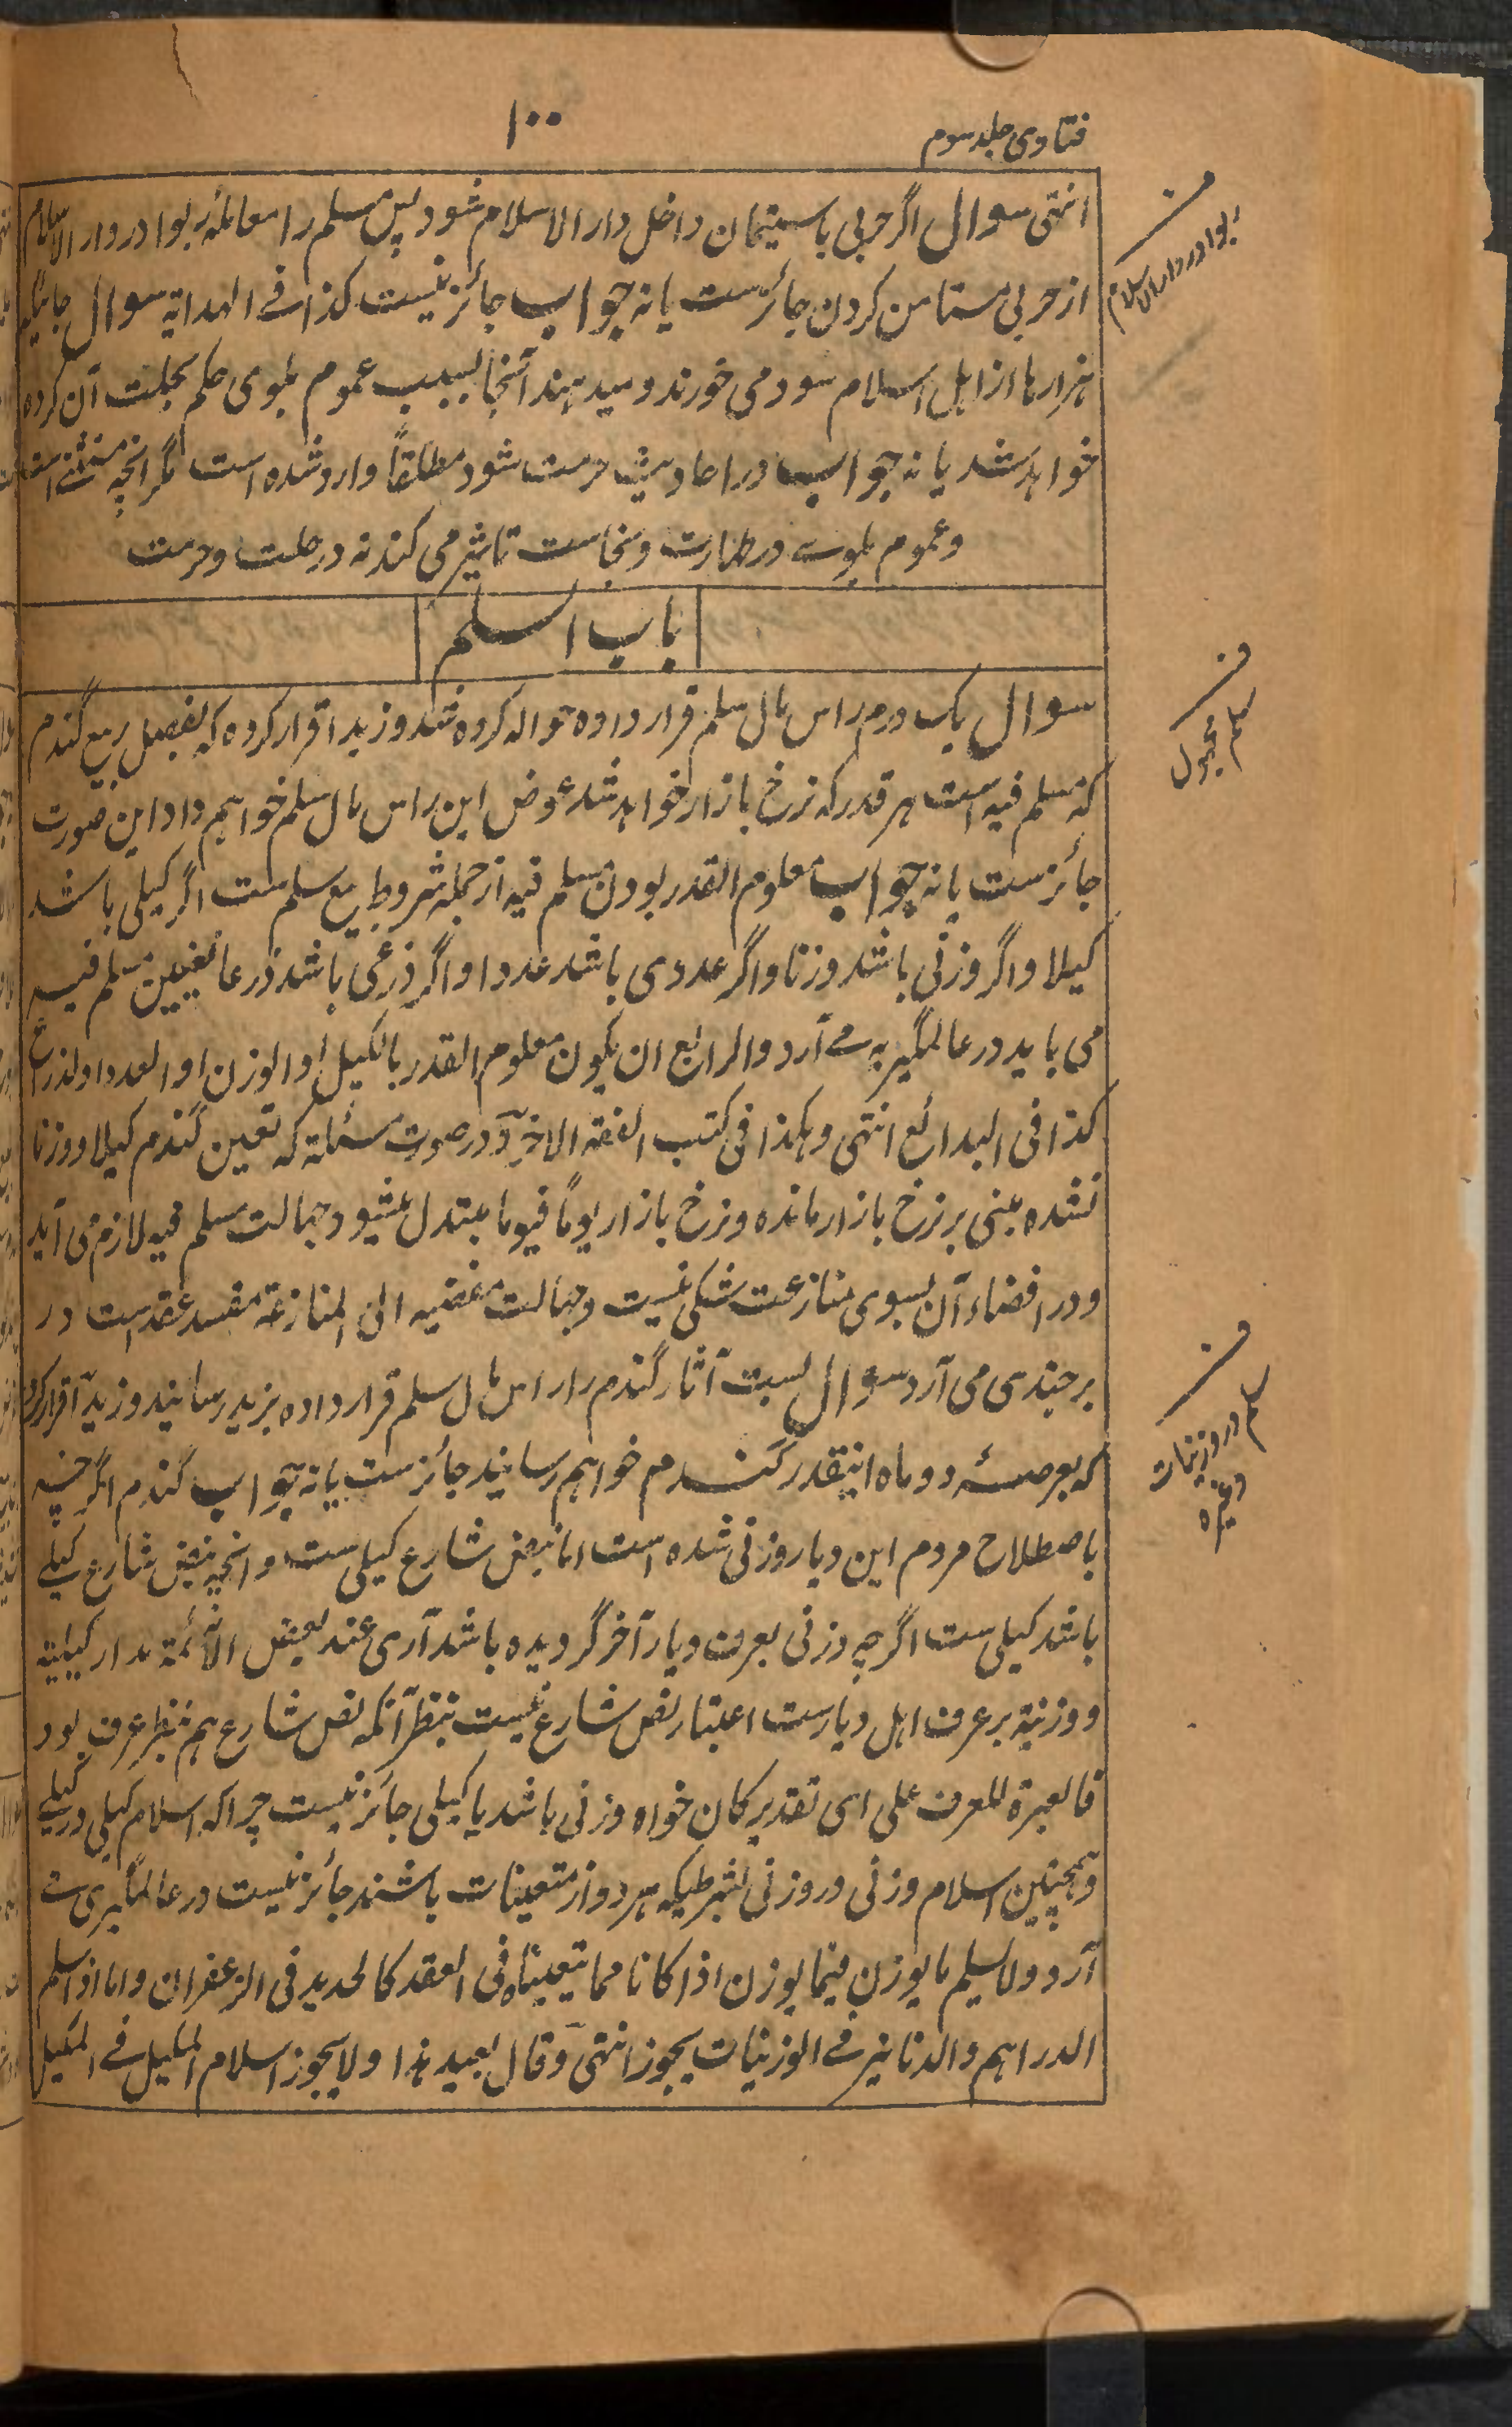 فتاوی جلد سوم
۱۰۰
انتہی سوال اگر حربی باستیمان داخل دار الاسلام شود پس مسلم را معاملۂ ربوا در دار الاسلام
از حربی مستامن کردن جائزست یا نہ جواب جائز نیست کذا فے الہدایہ سوال جائیکہ
ہزارہا از اہل اسلام سود می خورند و میدہند آنجا بسبب عموم بلوی حکم بحلت آن کردہ
خواہد شد یا نہ جواب در احادیث حرمت سود مطلقاً وارد شدہ است مگر انچہ مستثنے است
و عموم بلوے در طہارت و نجاست تاثیر می کند نہ در حلت و حرمت
باب السلم
سوال یک درم راس مال سلم قرار دادہ حوالہ کردہ شد و زید اقرار کردہ کہ بفصل ربیع گندم
کہ مسلم فیہ است ہر قدر کہ نرخ بازار خواہد شد عوض این راس مال سلم خواہم داد این صورت
جائزست یا نہ جواب معلوم القدر بودن مسلم فیہ از جملہ شروط بیع سلم ست اگر کیلی باشد
کیلا و اگر وزنی باشد وزنا و اگر عددی باشد عددا و اگر ذرعی باشد ذرعا تعیین مسلم فیہ
می باید در عالمگیریہ مے آرد والرابع ان یکون معلوم القدر بالکیل او الوزن او العدد او الذراع
کذا فی البدائع انتہی وہکذا فی کتب الفقہ الاخر و در صورت مسئلہ کہ تعین گندم کیلا و وزنا
نشدہ مبنی بر نرخ بازار ماندہ و نرخ بازار یوماً فیوما مبتدل میشود جہالت مسلم فیہ لازم می آید
و در افضاء آن بسوی منازعت شکی نیست و جہالت مفضیہ الی المنازعۃ مفسد عقد است در
برجندی می آرد سوال بست آثار گندم را راس مال سلم قرار دادہ بزید رسانید و زید اقرار کرد
کہ بعرصۂ دو ماہ اینقدر گندم خواہم رسانید جائزست یا نہ جواب گندم اگرچہ
باصطلاح مردم این دیار وزنی شدہ است اما بنص شارع کیلی ست و انچہ بنص شارع کیلے
باشد کیلی ست اگرچہ وزنی بعرف دیار آخر گردیدہ باشد آری عند بعض الائمۃ مدار کیلیۃ
و وزنیۃ بر عرف اہل دیارست اعتبار نص شارع نیست بنظر آنکہ نص شارع ہم بنظر عرف بود
فالعبرۃ للعرف علی ای تقدیر کان خواہ وزنی باشد یا کیلی جائز نیست چراکہ اسلام کیلی در کیلے
و ہمچنین اسلام وزنی در وزنی بشرطیکہ ہر دو از متعینات باشند جائز نیست در عالمگیری مے
آرد ولا یسلم ما یوزن فیما یوزن اذا کانا مما یتعینان فی العقد کالحدید فی الزعفران واما اذا اسلم
الدراہم والدنانیر فے الوزنیات یجوز انتہی وقال بعید ہذا ولا یجوز اسلام المکیل فے المکیل
ف
ربوا در دار الاسلام
ف
سلم مجہول
ف
سلم در وزنیات
وغیرہ